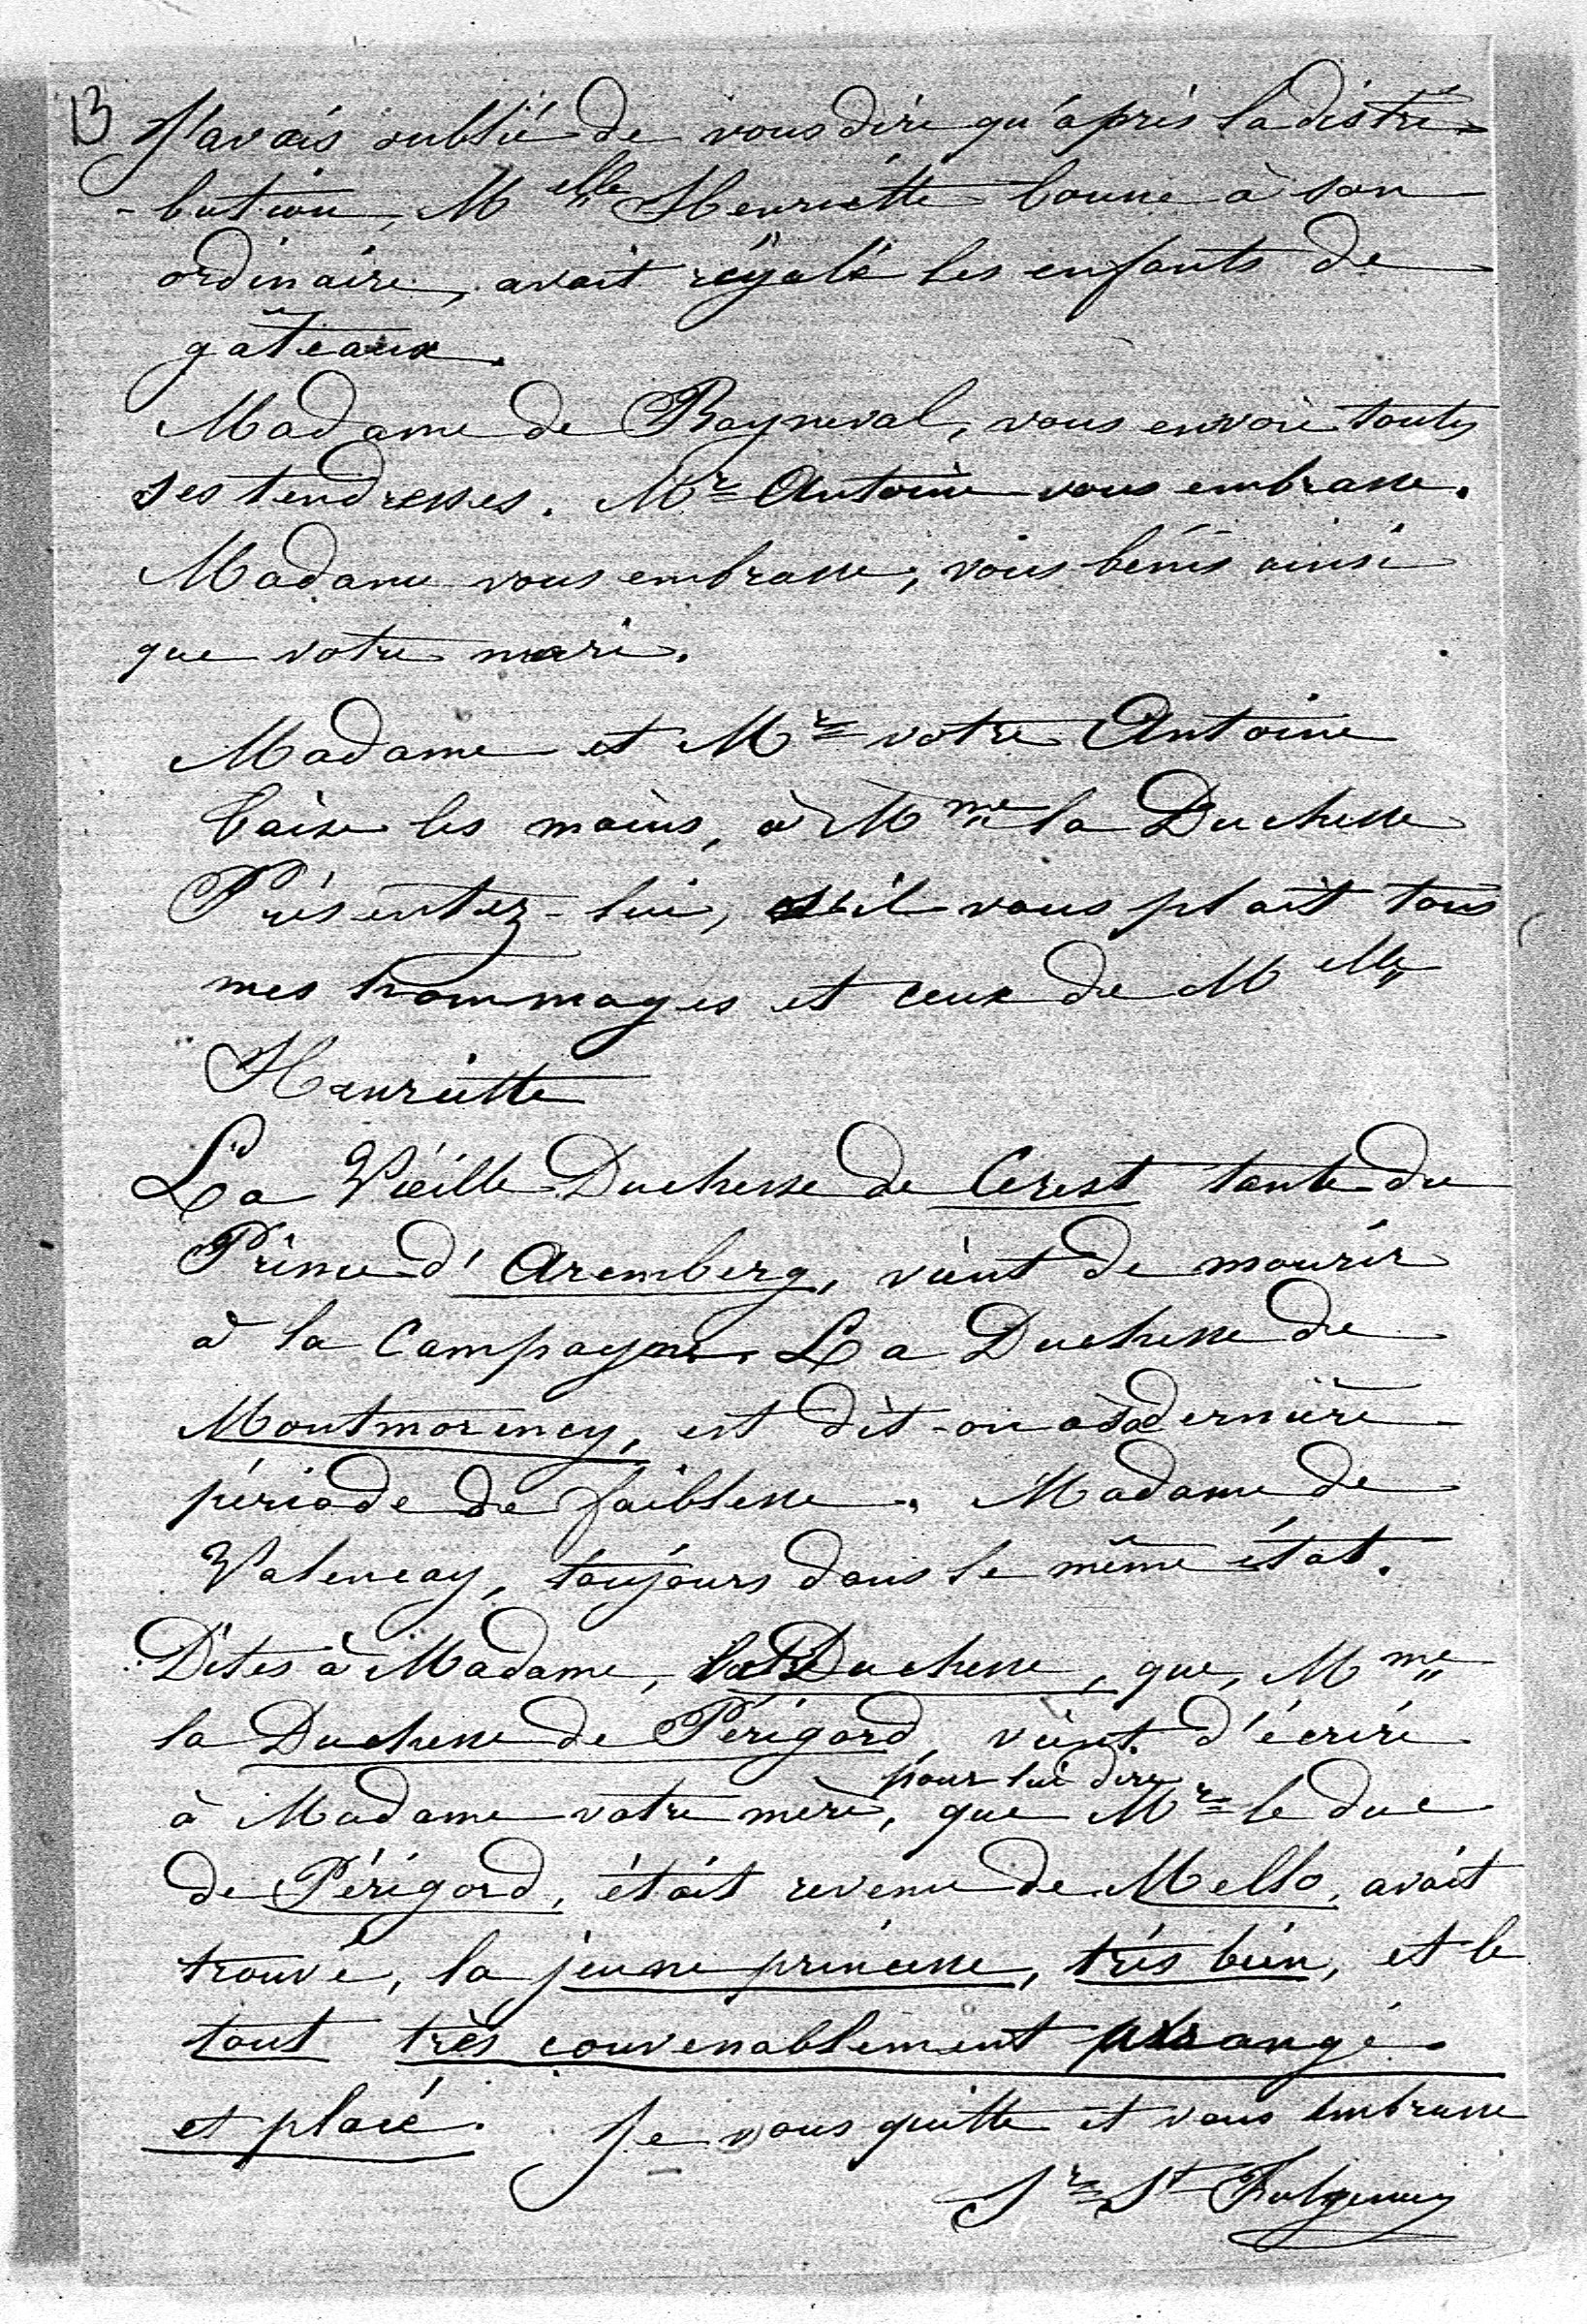 13 J'avais oublié de vous dire qu'après la distri-
-bution, Melle Henriette bonne à son
ordinaire, avait régalé les enfants de
gâteaux.
Madame de Rayneval, vous envoie toutes
ses tendresses. Mr Antoine vous embrasse.
Madame vous embrasse, vous bénis ainsi
que votre mari.
Madame et Mr votre Antoine
baise les mains, à Mme la Duchesse
Présentez-lui, s'il vous plait tous
mes hommages et ceux de Melle
Henriette
La Vieille Duchesse de Cerest tante du
Prince d'Aremberg, vient de mourir
à la Campagne. La Duchesse de
Montmorency, est dit-on à sa dernière
période de faiblesse. Madame de
Valencay, toujours dans le même état.
Dites à Madame, la Duchesse, que, Mme
la Duchesse de Périgord, vient d'écrire
à Madame votre mère, pour lui dire que Mr le duc
de Périgord, était revenu de Mello, avait
trouvé, la jeune princesse, très bien, et le
tout très convenablement arrangé
et placé. Je vous quitte et vous embrasse
Sr St Fulgence